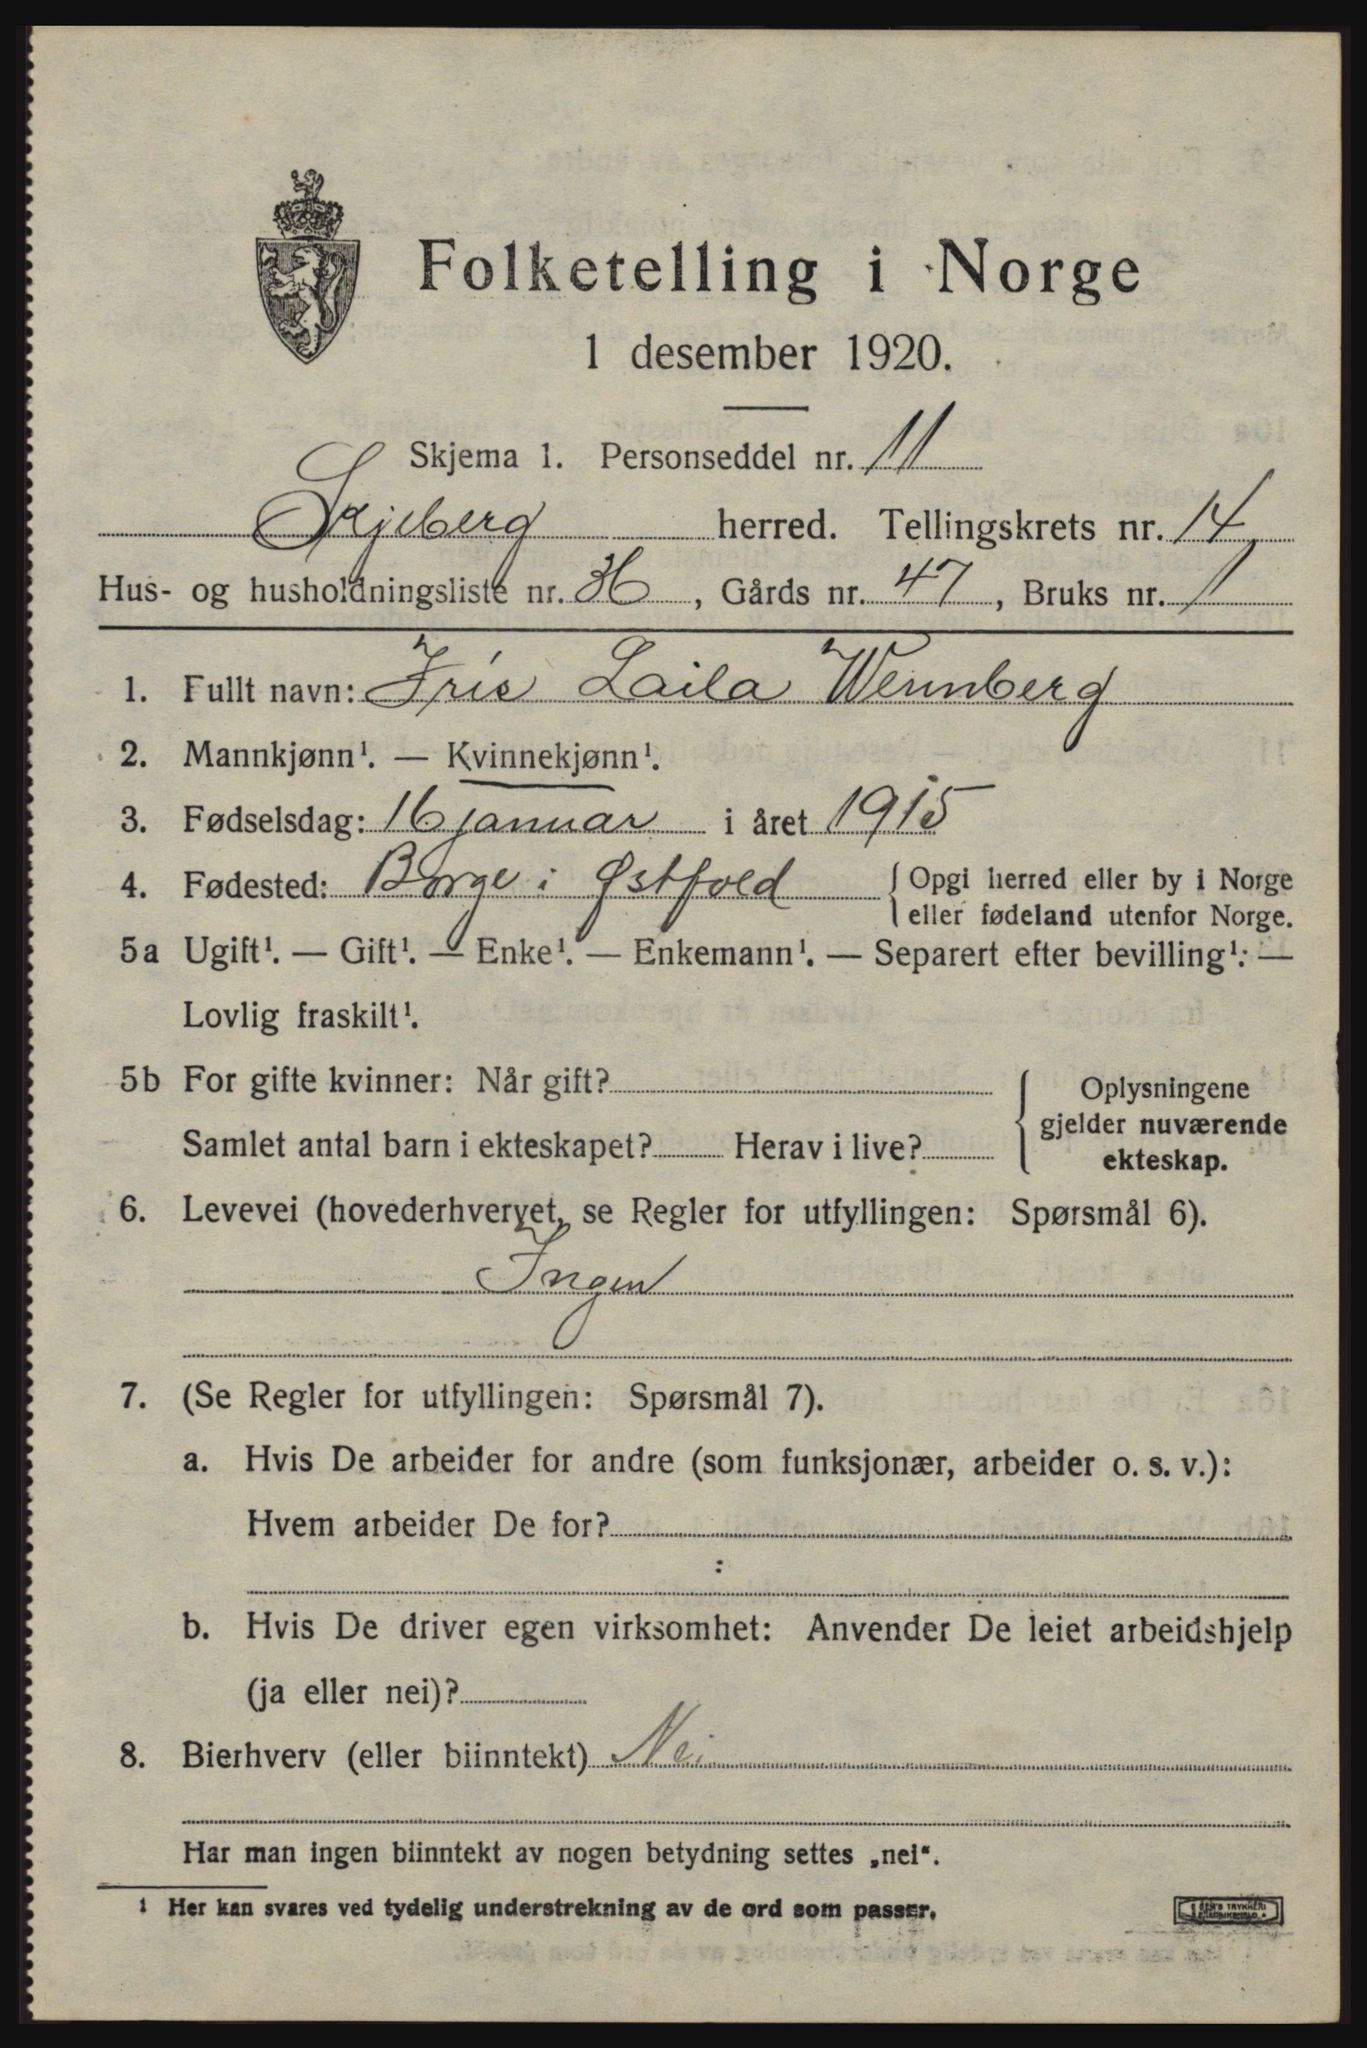 Folketelling i Norge
1 desember 1920.
Skjema 1. Personseddel nr. 11
Skjeberg herred. Tellingskrets nr. 14
Hus- og husholdningsliste nr. 36, Gårds nr. 47, Bruks nr. 1
1. Fullt navn: Iris Laila Wennberg
2. Mannkjønn¹. — Kvinnekjønn¹.
3. Fødselsdag: 16 januar i året 1915
4. Fødested: Borge i Østfold { Opgi herred eller by i Norge
eller fødeland utenfor Norge.
5a Ugift¹. — Gift¹. — Enke¹. — Enkemann¹. — Separert efter bevilling¹. —
Lovlig fraskilt¹.
5b For gifte kvinner: Når gift? { Oplysningene
gjelder nuværende
Samlet antal barn i ekteskapet? Herav i live?
ekteskap.
6. Levevei (hovederhvervet, se Regler for utfyllingen: Spørsmål 6).
Ingen
7. (Se Regler for utfyllingen: Spørsmål 7).
a. Hvis De arbeider for andre (som funksjonær, arbeider o. s. v.):
Hvem arbeider De for?
b. Hvis De driver egen virksomhet: Anvender De leiet arbeidshjelp
(ja eller nei)?
8. Bierhverv (eller biinntekt) Nei
Har man ingen biinntekt av nogen betydning settes „nei“.
1 Her kan svares ved tydelig understrekning av de ord som passer.